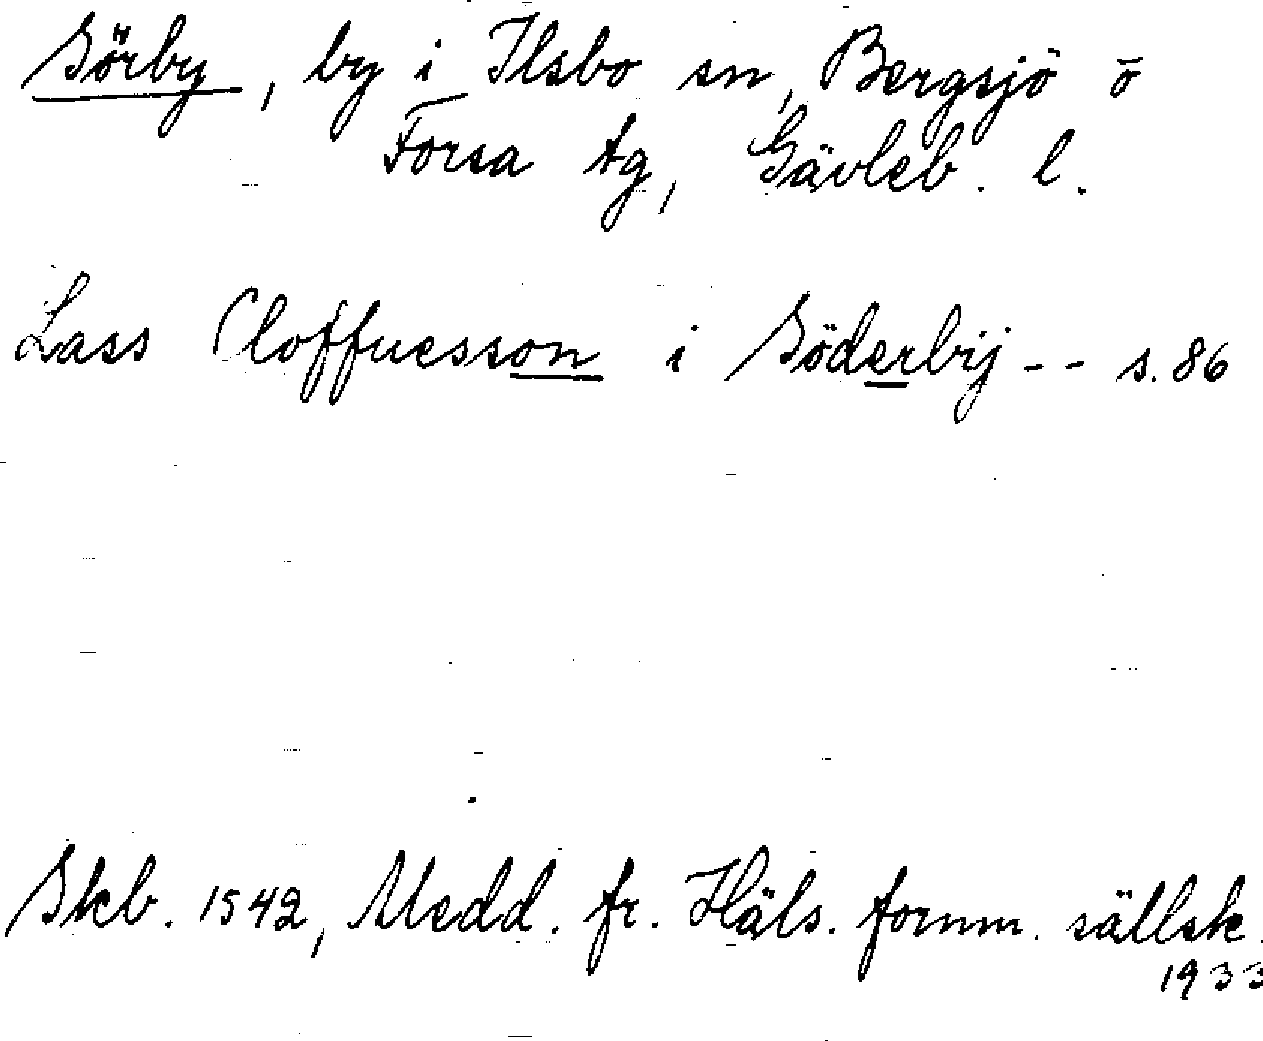 Sörby, by i Ilsbo sn, Bergsjö o
Forsa tg, Gävleb. l.
Lass Oloffuesson i Söderbij -- s. 86
Skb. 1542, Medd. fr. Häls. fornm. sällsk.
1933